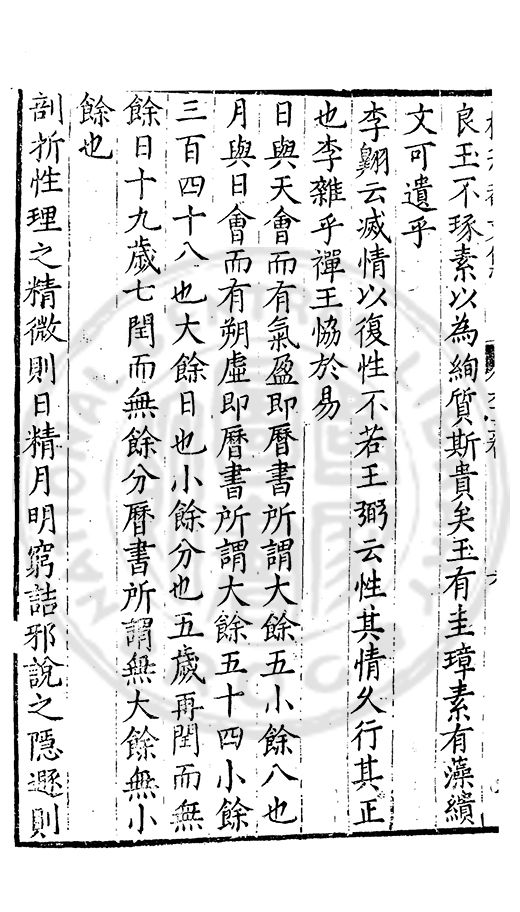 良玉不琢素以為絢質斯貴矣玉有圭璋素有藻繢
文可遺乎
李翺云滅情以復性不若王弼云性其情久行其正
也李雜乎禪王恊於易
日與天會而有氣盈即曆書所謂大餘五小餘八也
月與日會而有朔虛即曆書所謂大餘五十四小餘
三百四十八也大餘日也小餘分也五歲再閏而無
餘日十九歲七閏而無餘分曆書所謂無大餘無小
餘也
剖折性理之精微則日精月明窮詰邪說之隱遯則